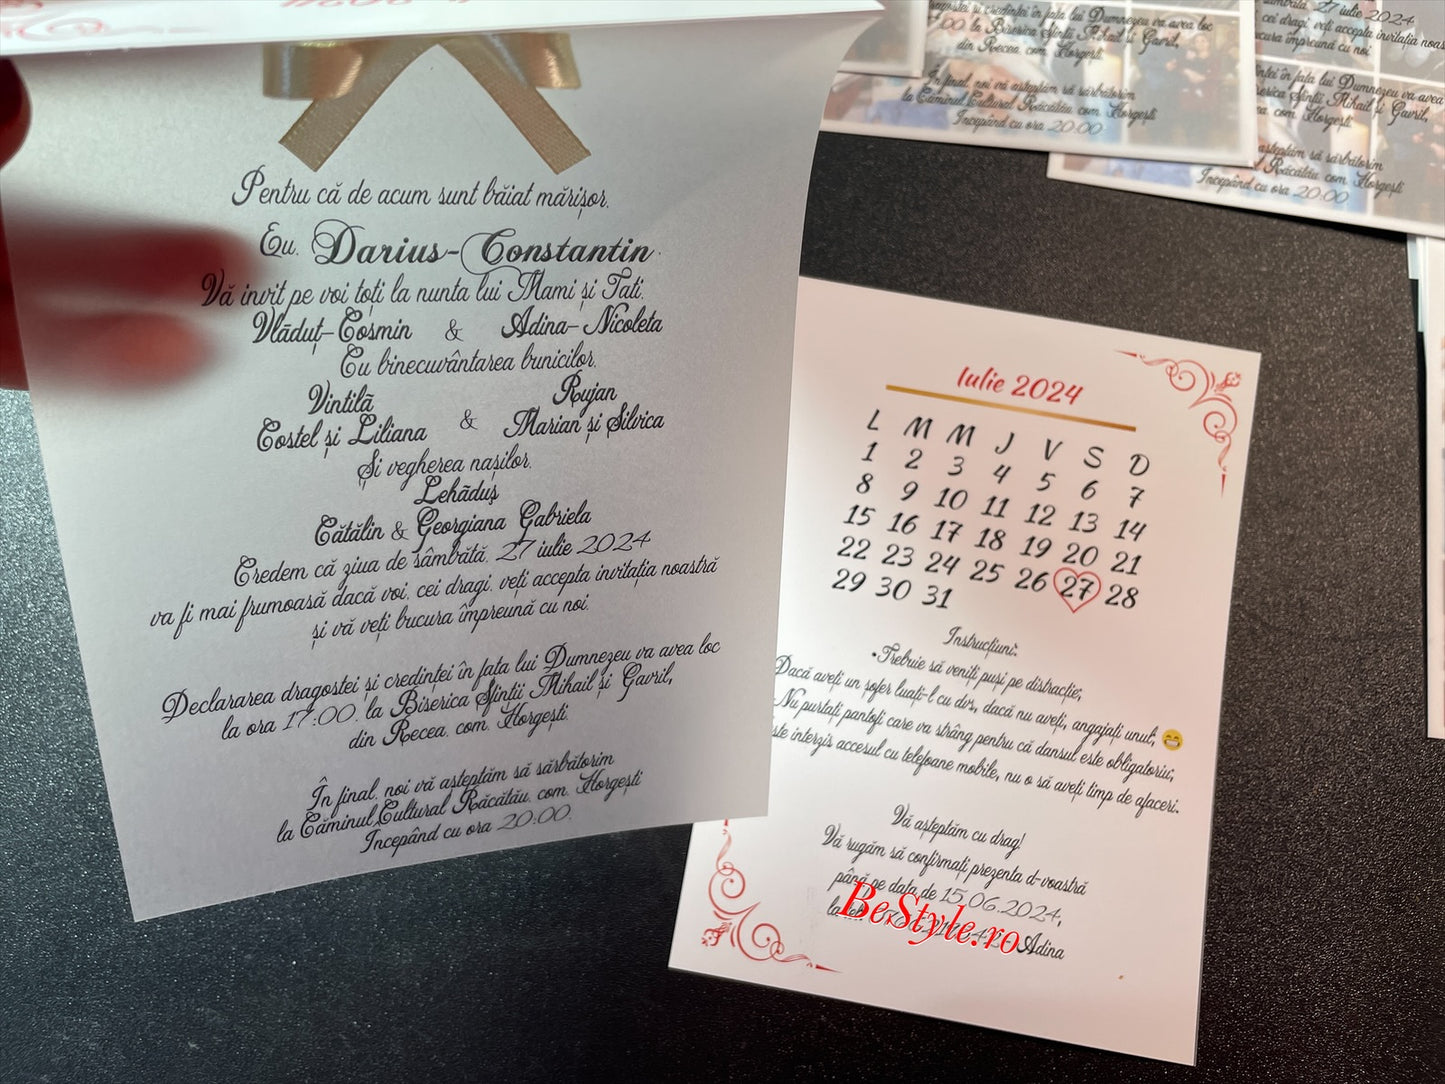 Pentru că de acum sunt băiat mărișor,
Eu, Darius-Constantin,
Vă invit pe voi toți la nunta lui Mami și Tati,
Vlăduț-Cosmin & Adina-Nicoleta
Cu binecuvântarea bunicilor,
Vintilă
Costel și Liliana
&
Rujan
Marian și Silvica
Și vegherea nașilor,
Lehăduș
Cătălin & Georgiana Gabriela
Credem că ziua de sâmbătă, 27 iulie 2024
va fi mai frumoasă dacă voi, cei dragi, veți accepta invitația noastră
și vă veți bucura împreună cu noi.
Declararea dragostei si credinței în fața lui Dumnezeu va avea loc
la ora 17:00, la Biserica Sfinții Mihail și Gavril,
din Recea, com. Horgești.
În final, noi vă așteptăm să sărbătorim
la Căminul Cultural Răcătău, com. Horgești
Începând cu ora 20:00.
Iulie 2024
L M M J V S D
1 2 3 4 5 6 7
8 9 10 11 12 13 14
15 16 17 18 19 20 21
22 23 24 25 26 27 28
29 30 31
Instrucțiuni:
•Trebuie să veniți puși pe distracție;
Dacă aveți un șofer luați-l cu dvs, dacă nu aveți, angajați unul; 😁
Nu purtați pantofi care va strâng pentru că dansul este obligatoriu;
este interzis accesul cu telefoane mobile, nu o să aveți timp de afaceri.
Vă așteptăm cu drag!
Vă rugăm să confirmați prezenta d-voastră
până pe data de 15.06.2024,
la tel. Adina
BeStyle.ro
dragostei si credinței în fața lui Dumnezeu va avea loc
17:00, la Biserica Sfinții Mihail și Gavril,
din Recea, com. Horgești.
În final, noi vă așteptăm să sărbătorim
la Căminul Cultural Răcătău, com. Horgești
Începând cu ora 20:00
27 iulie 2024
cei dragi, veți accepta invitația
împreună cu noi
în fața lui Dumnezeu va avea
Sfinții Mihail și Gavril,
com. Horgești
așteptăm să sărbătorim
Răcătău com. Horgești
Începând cu ora 20:00